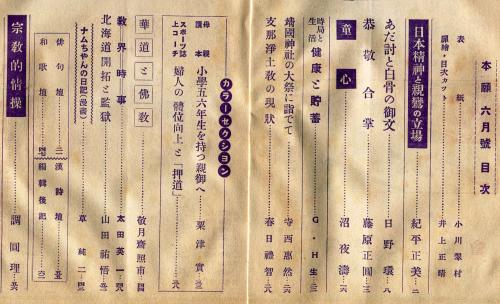 本願六月號目次
表紙……小川翠村
扉繪・目次カット……井上正晴
日本精神と親鸞の立場……紀平正美…二
あだ討と白骨の御文……日野環…八
恭敬合掌……藤原正圓…三
童心……沼夜濤…六
時局と生活 健康と貯蓄……G・H生
靖國神社の大祭に詣でて……寺西惠然…六
支那淨土敎の現狀……春日禮智
カラーセクション
母親讀本 小學五六年生を持つ親御へ……粟津實
スポーツ誌上コーチ 婦人の體位向上と「押道」
華道と佛敎……敬月齋照市
敎界時事……太田英一
北海道開拓と監獄……山田祐悟
ナムちやんの日記(漫畫)……草純二
俳句壇
和歌壇
漢詩壇
編輯後記
宗敎的情操……調圓理